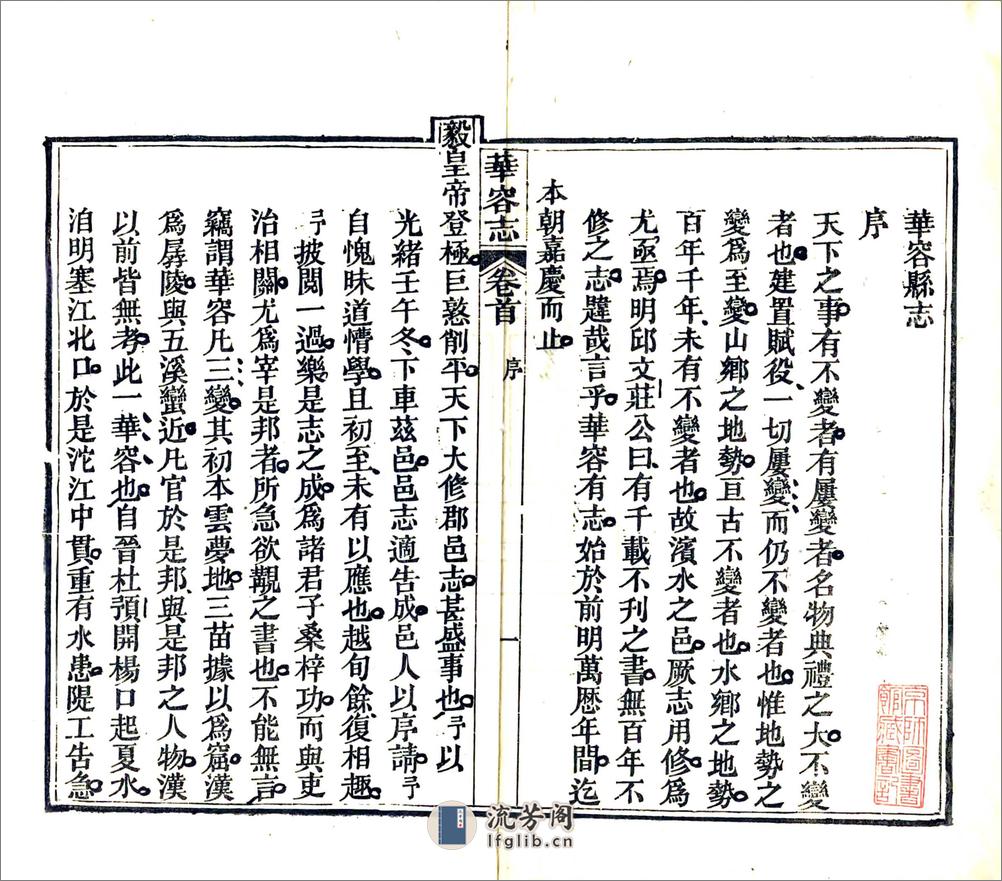 華容縣志
序
天下之事有不變者有屢變者名物典禮之大不變
者也建置賦役一切屢變而仍不變者也惟地勢之
變爲至變山鄉之地勢亘古不變者也水鄉之地勢
百年千年未有不變者也故濱水之邑厥志用修爲
尤亟焉明邱文莊公曰有千載不刊之書無百年不
修之志韙哉言乎華容有志始於前明萬歷年間迄
本朝嘉慶而止
華容志 卷首 序 一
毅皇帝登極巨憝削平天下大修郡邑志甚盛事也予以
光緒壬午冬下車茲邑邑志適告成邑人以序請予
自愧昧道懵學且初至未有以應也越旬餘復相趣
予披閱一過樂是志之成爲諸君子桑梓功而與吏
治相關尤爲宰是邦者所急欲觀之書也不能無言
竊謂華容凡三變其初本雲夢地三苗據以爲窟漢
爲孱陵與五溪蠻近凡官於是邦與是邦之人物漢
以前皆無考此一華容也自晉杜預開楊口起夏水
洎明塞江北口於是沱江中貫重有水患隄工告急
京師圖書
館藏書記
流芳阁
lfglib.com